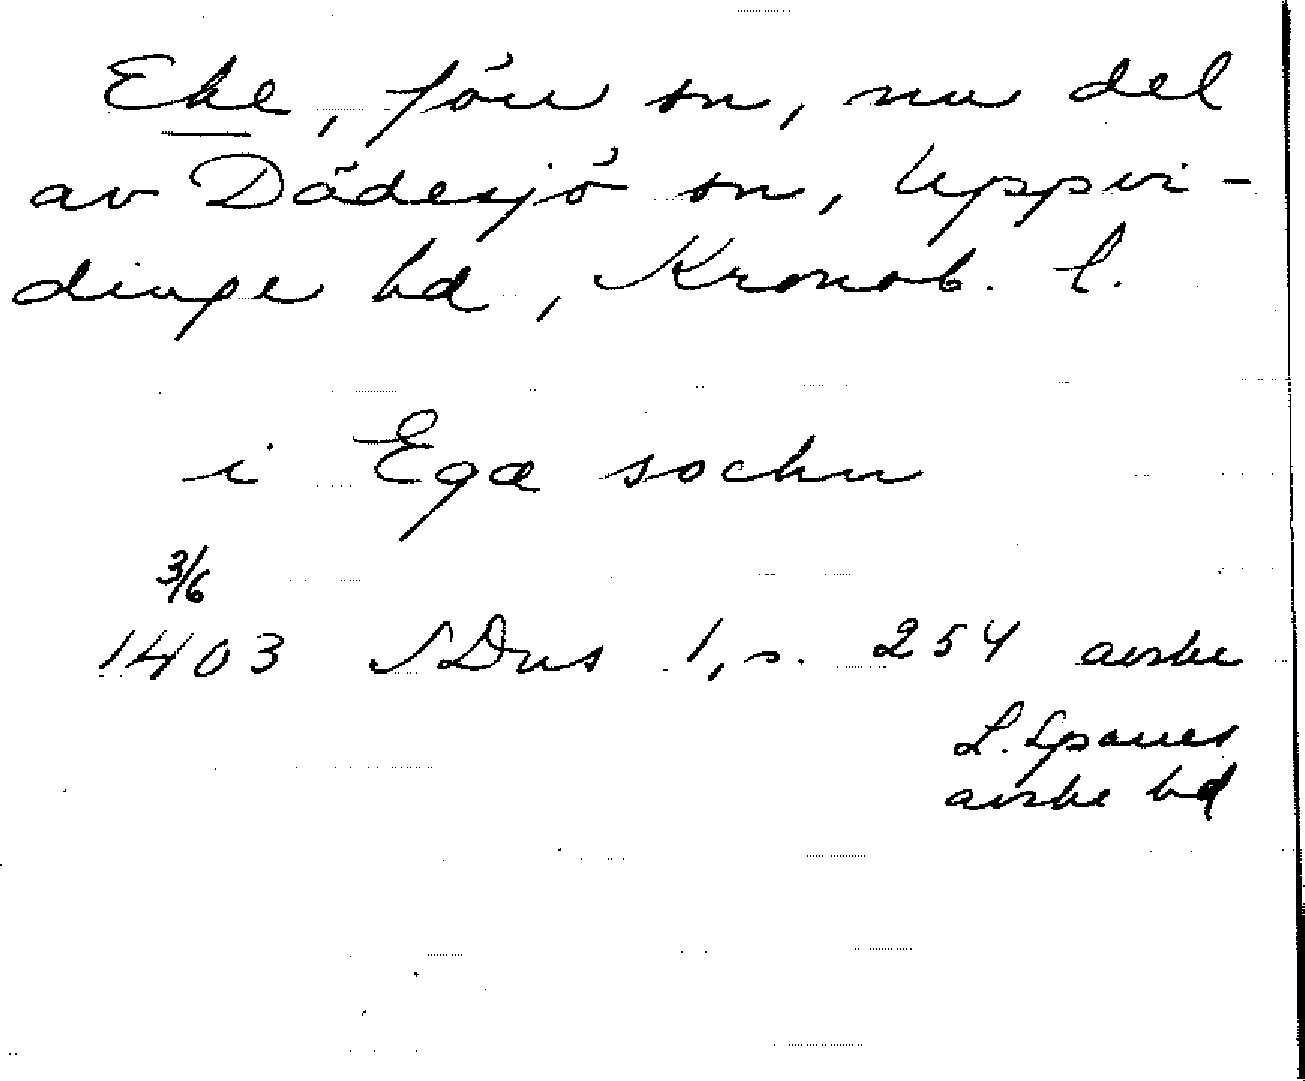 Eke, förr sn, nu del
av Dädesjö sn, Uppvi-
dinge hd, Kronob. l.
i Egæ sochn
3/6
1403 SDns 1, s. 254 avskr
L. Spanes
avskr hd